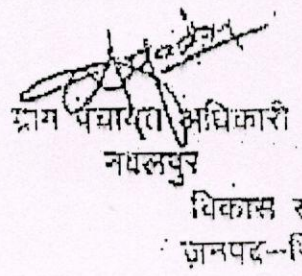 ग्राम पंचायत अधिकारी
नवलपुर
विकास
जनपद--